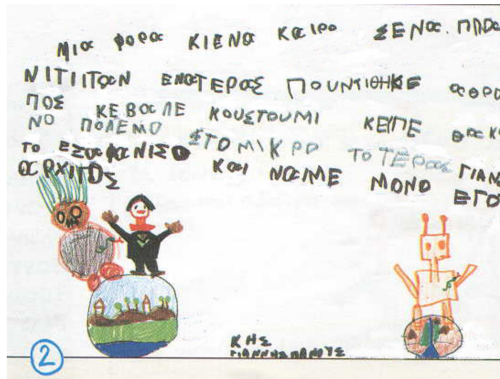 ΜΙΑ ΦΟΡΑ ΚΙΕΝΑ ΚΑΙΡΟ ΣΕΝΑ ΠΛΑ
ΝΙΤΙΙΤΑΝ ΕΝΑΤΕΡΑΣ ΠΟΥΝΤΙΘΗΚΕ ΑΘΡΟ
ΠΟΣ ΚΕΒΑΛΕ ΚΟΥΣΤΟΥΜΙ ΚΕΙΠΕ ΘΑΚ
ΝΟ ΠΟΛΕΜΟ ΣΤΟΜΙΚΡΟ ΤΟΤΕΡΑΣ ΓΙΑΝ
ΤΟ ΕΞΑΦΑΝΙΣΟ ΚΑΙ ΝΑΜΕ ΜΟΝΟ ΕΓΟ
ΑΡΧΙΓΟΣ
ΚΗΣ
ΓΙΑΝΝΗΣ
2